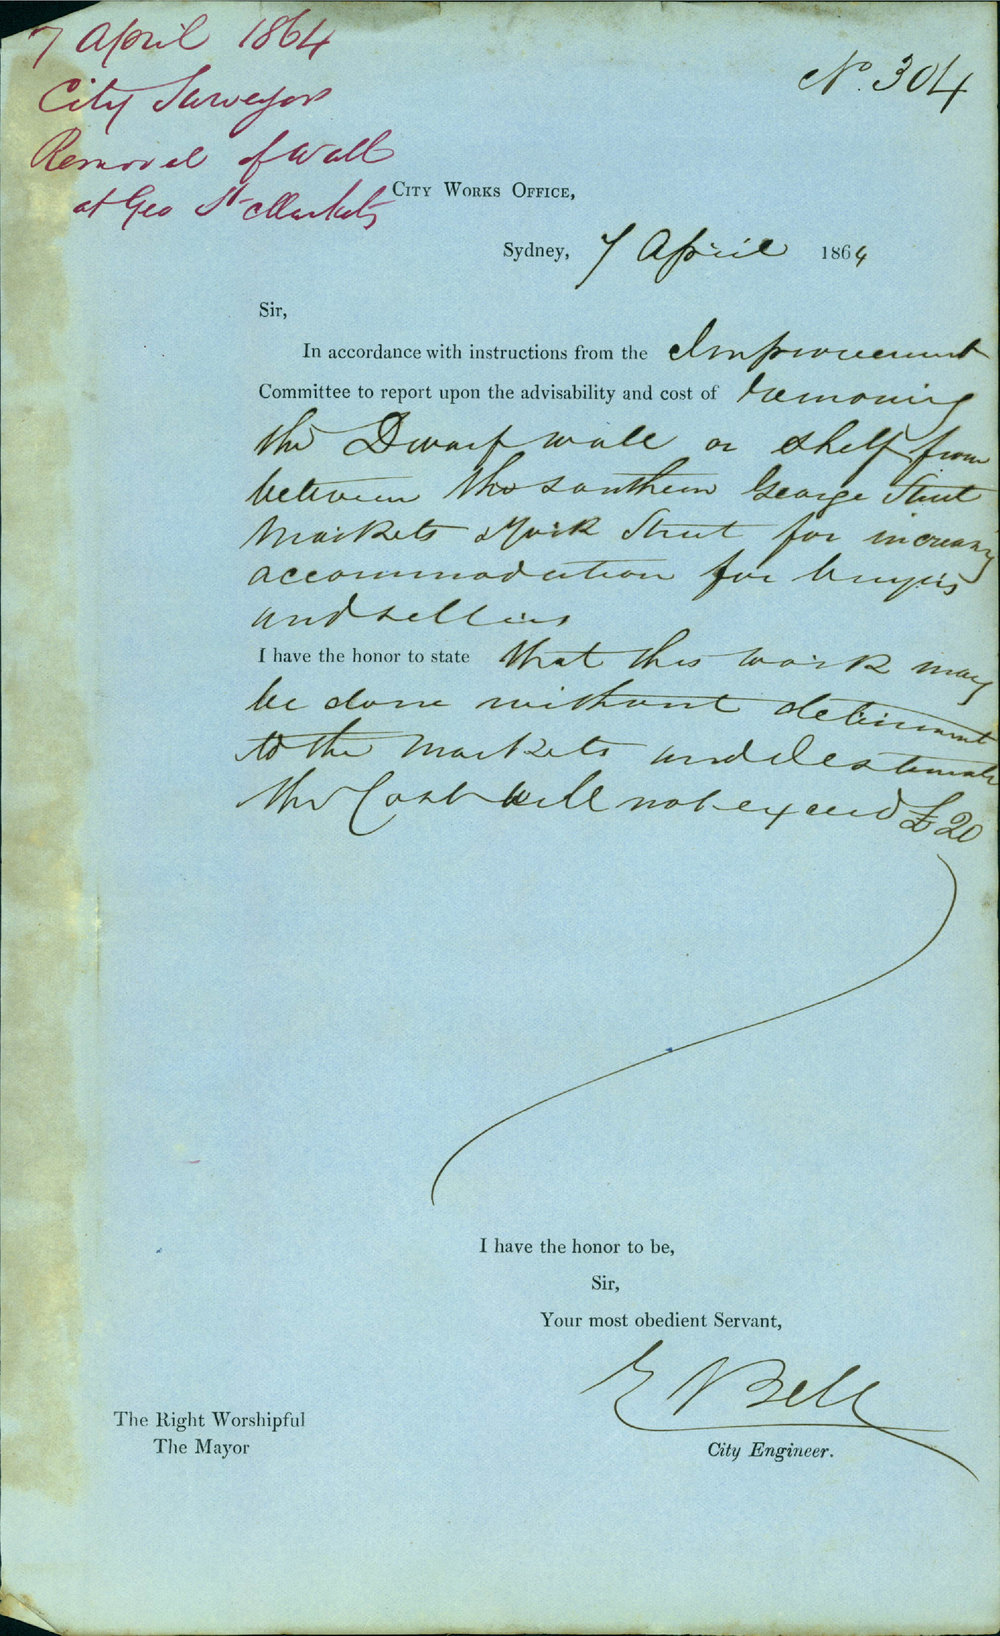 7 April 1864
City Surveyor
Removal of Wall
at Geo St Markets
No. 304
City Works Office,
Sydney, 7 April 1864
Sir,
In accordance with instructions from the Improvement
Committee to report upon the advisability and cost of removing
the Dwarf wall or shelf from
between the southern George Street
Markets & York Street for increasing
accommodation for buyers
and sellers
I have the honor to state that this work may
be done without detriment
to the Markets and I estimate
the Cost will not exceed £20
I have the honor to be,
Sir,
Your most obedient Servant,
E Bell
City Engineer.
The Right Worshipful
The Mayor